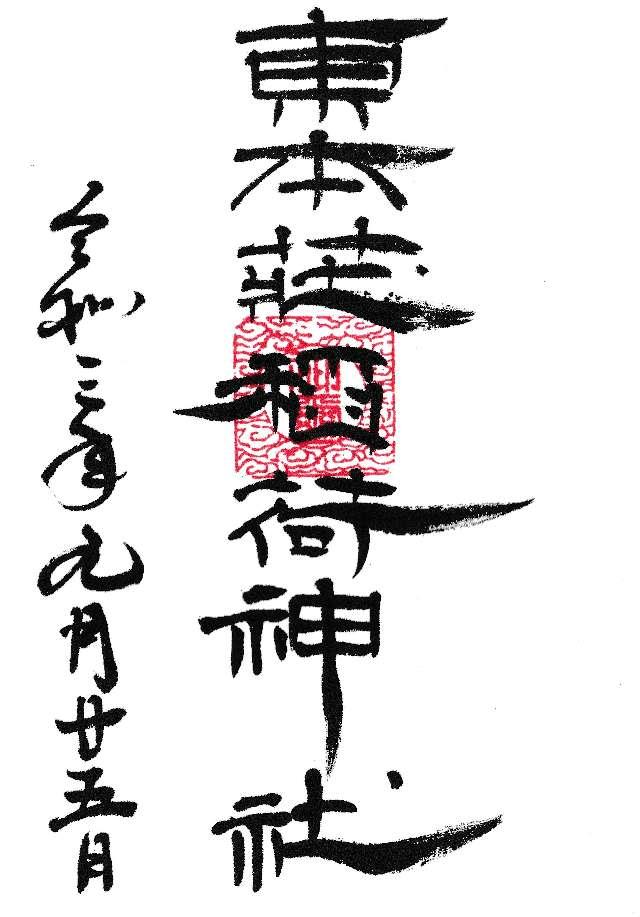 東本莊稲荷神社
令和三年九月廿五日